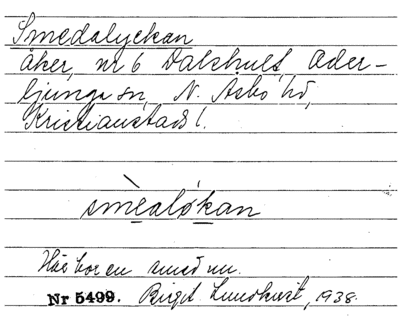 Smedalyckan
åker, nr 6 Dalshult, Oder-
ljunga sn, N. Åsbo hd,
Kristianstads l.
smèalókan
Här bor en smed nu.
Nr 5499. Birgit Lundkvist, 1938.